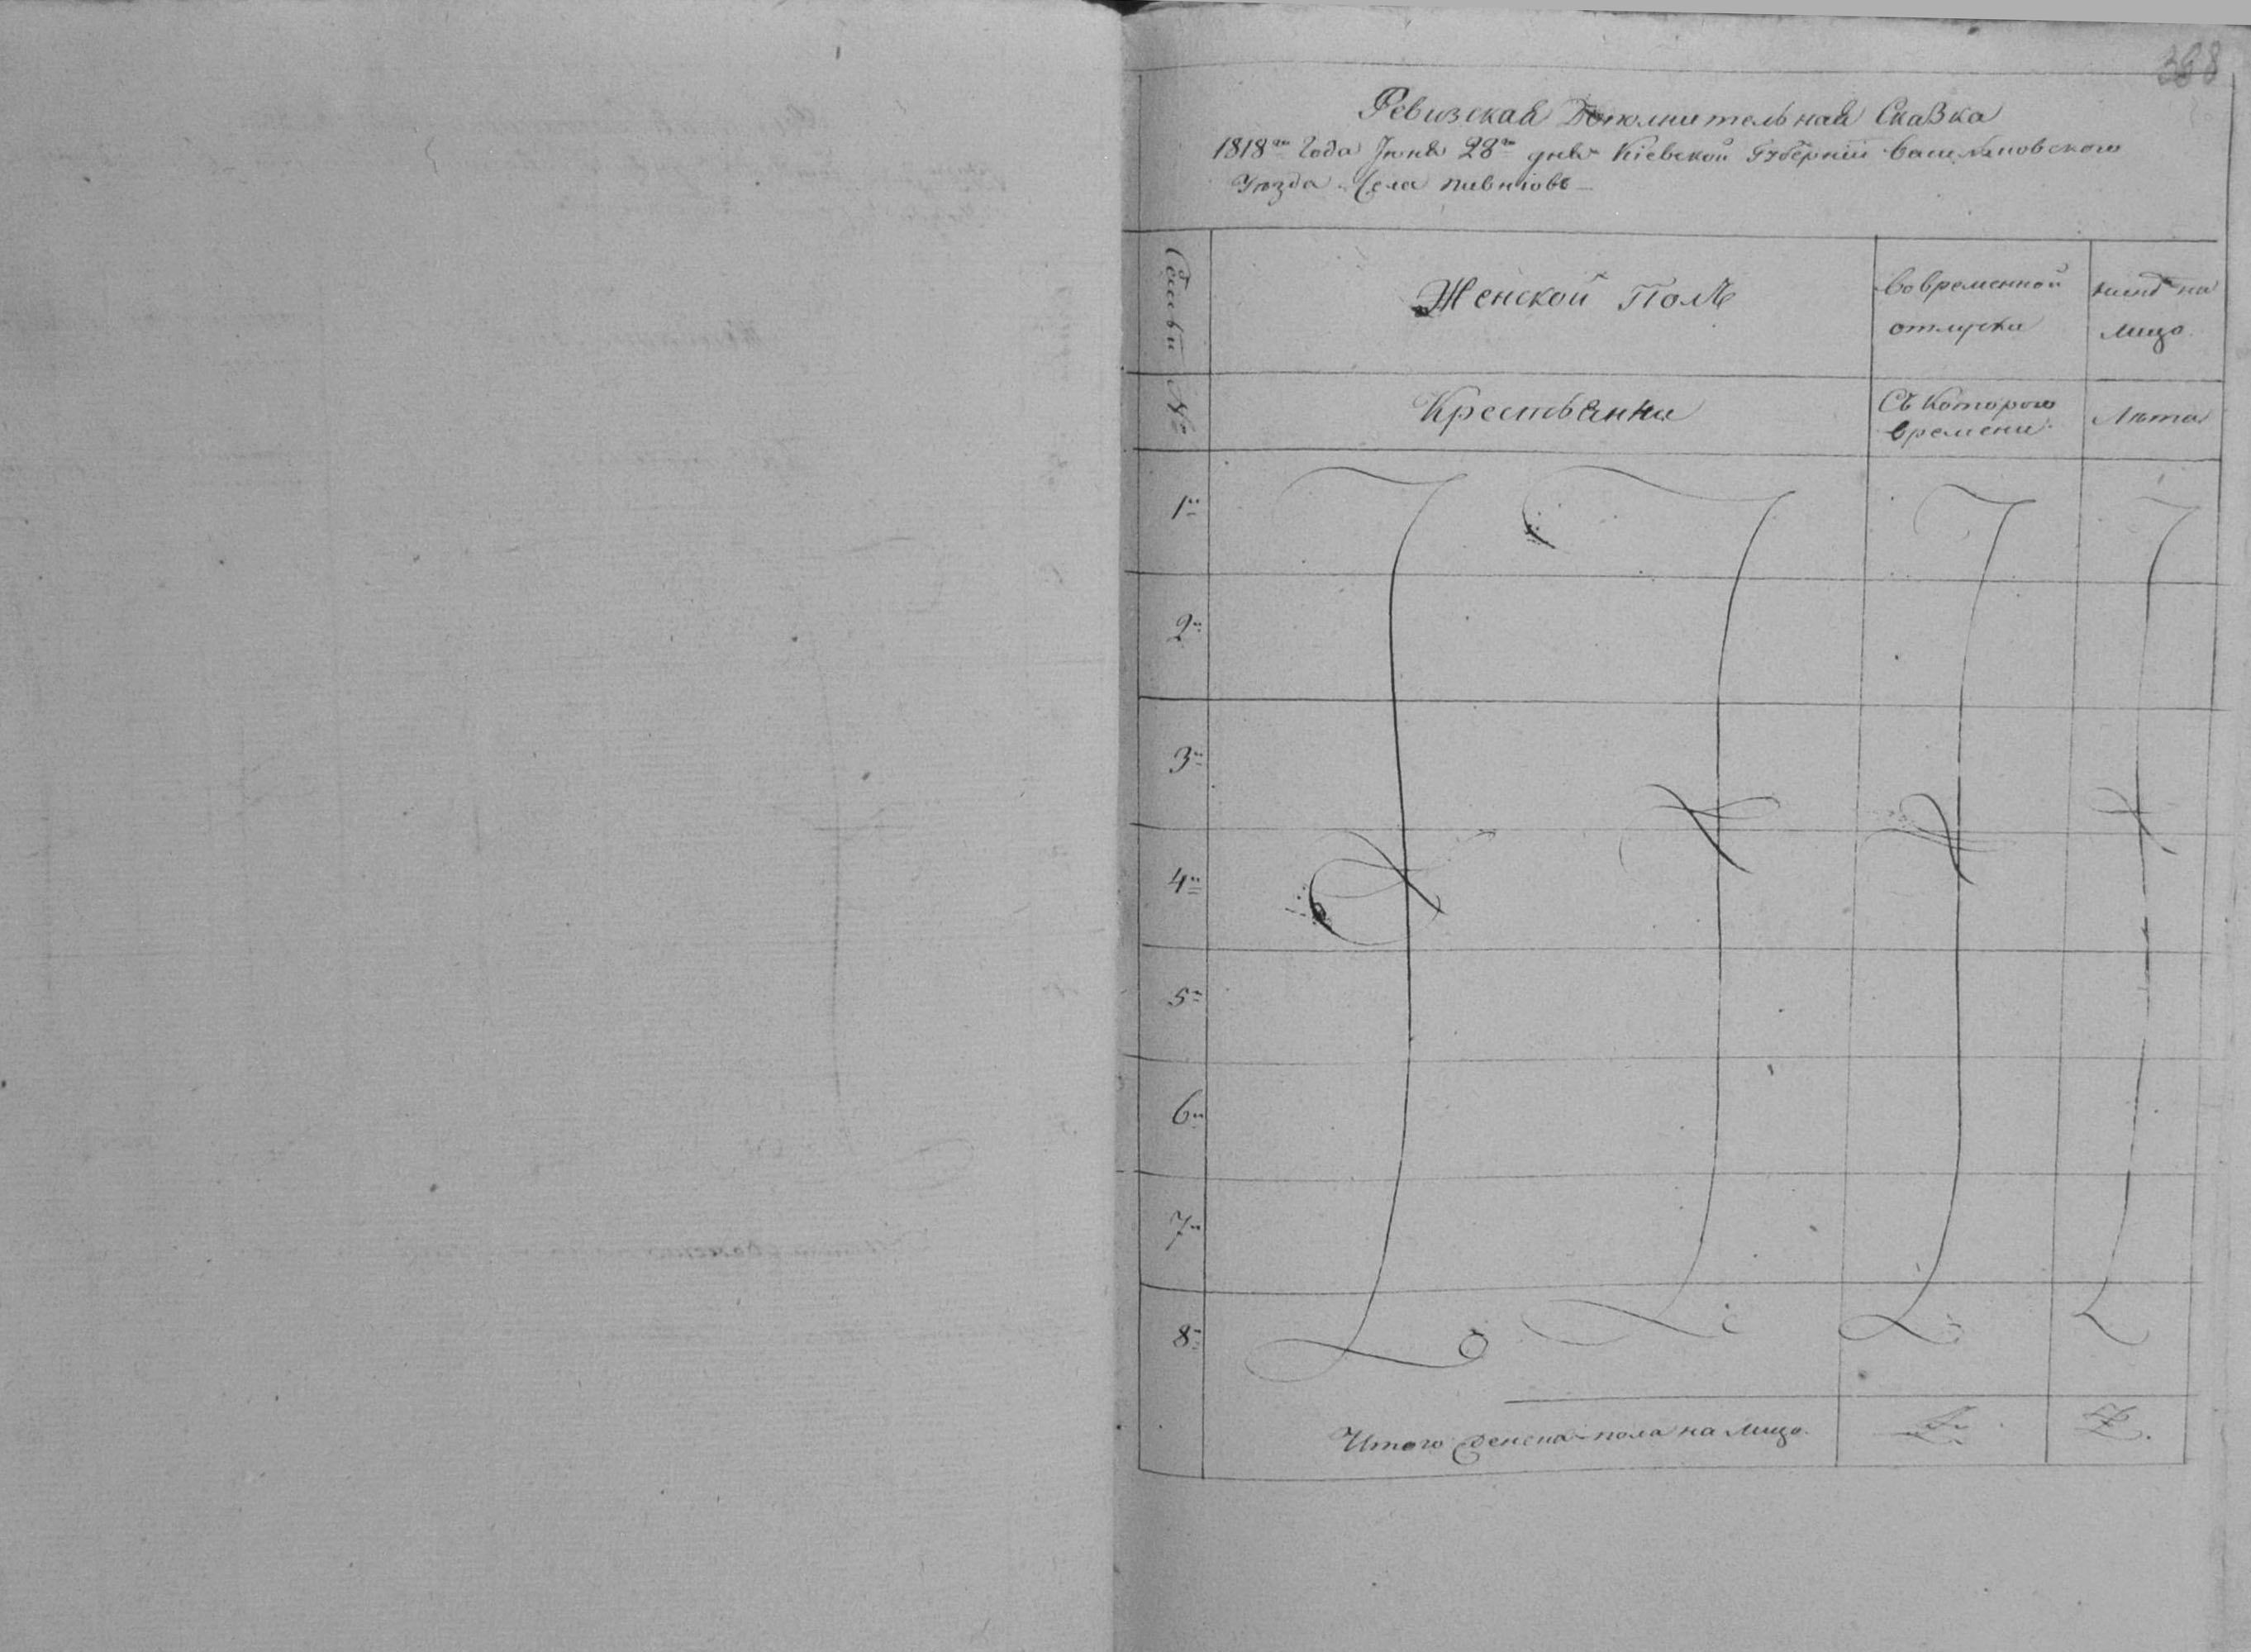 388
Ревизская Дополнительная Сказка
1818го Года Июня 28го дня Кіевской Губерніи Васильковского
Уезда Села пивніовъ
Семьи
Женской Полъ
Вовременной
отлучки
ныне на
лицо.
№
Крестьянки
Съ Которого
времени.
Лета
1
2
3
4
5
6
7
8
Итого Женска пола на лицо.